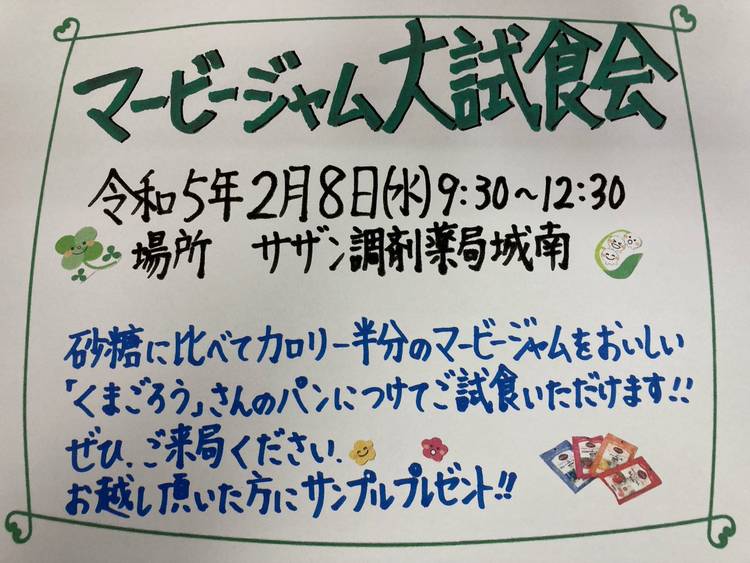 マービージャム大試食会
令和5年2月8日(水)9:30~12:30
場所 サザン調剤薬局城南
砂糖に比べてカロリー半分のマービージャムをおいしい
「くまごろう」さんのパンにつけてご試食いただけます!!
ぜひ、ご来局ください、
お越し頂いた方にサンプルプレゼント!!